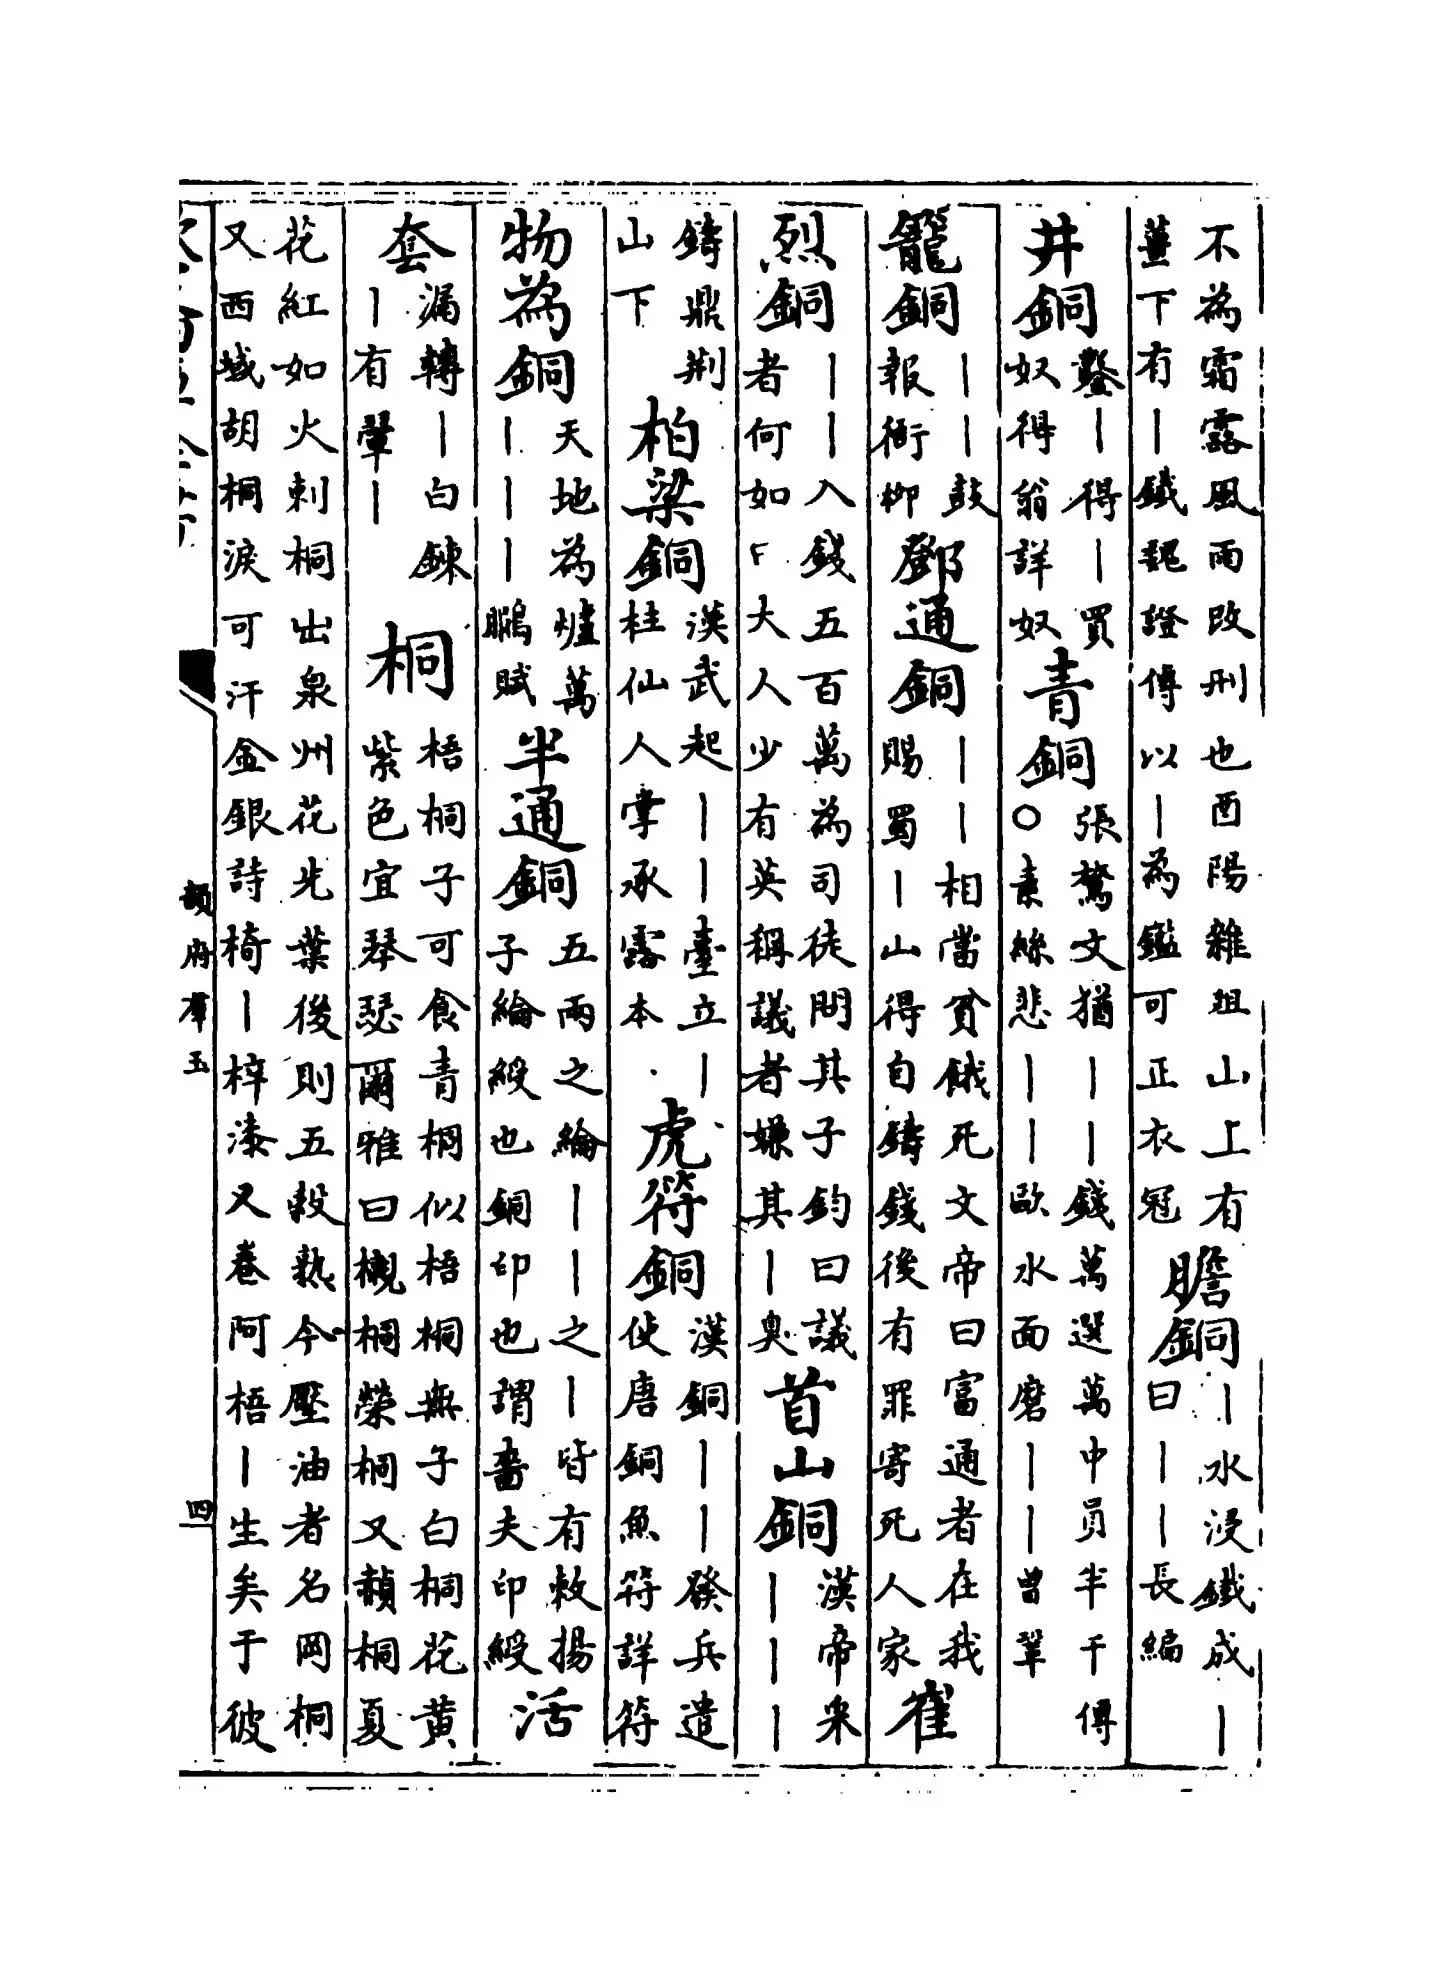 不為霜露風雨改刑也酉陽雜俎山上有
薑下有丨鐵魏證傳以丨為鑑可正衣冠
膽銅
丨水浸鐵成丨
曰丨丨長編
井銅
鑿丨得丨買
奴得翁詳奴
青銅
張鷟文猶丨丨錢萬選萬中員半千傳
○素絲悲丨丨歐水面磨丨丨曾鞏
籠銅
丨丨鼓
報衙柳
鄧通銅
丨丨相當貧餓死文帝曰富通者在我
賜蜀丨山得自鑄錢後有罪寄死人家
崔
烈銅
丨丨入錢五百萬為司徒問其子鈞曰議
者何如大人少有英稱議者嫌其丨臭
首山銅
漢帝采
丨丨丨
鑄鼎荆
山下
柏梁銅
漢武起丨丨臺立丨
柱仙人掌承露本
虎符銅
漢銅丨丨發兵遣
使唐銅魚符詳符
物為銅
天地為爐萬
丨丨丨鵬賦
半通銅
五兩之綸丨丨之丨皆有敕揚
子綸綬也銅印也謂嗇夫印綬
活
套
漏轉丨白鍊
丨有翬丨
桐
梧桐子可食青桐似梧桐無子白桐花黃
紫色宜琴瑟爾雅曰櫬桐榮桐又赬桐夏
花紅如火刺桐出泉州花先葉後則五穀熟今壓油者名岡桐
又西域胡桐淚可汗金銀詩椅丨梓漆又卷阿梧丨生矣于彼
韻府群玉
四